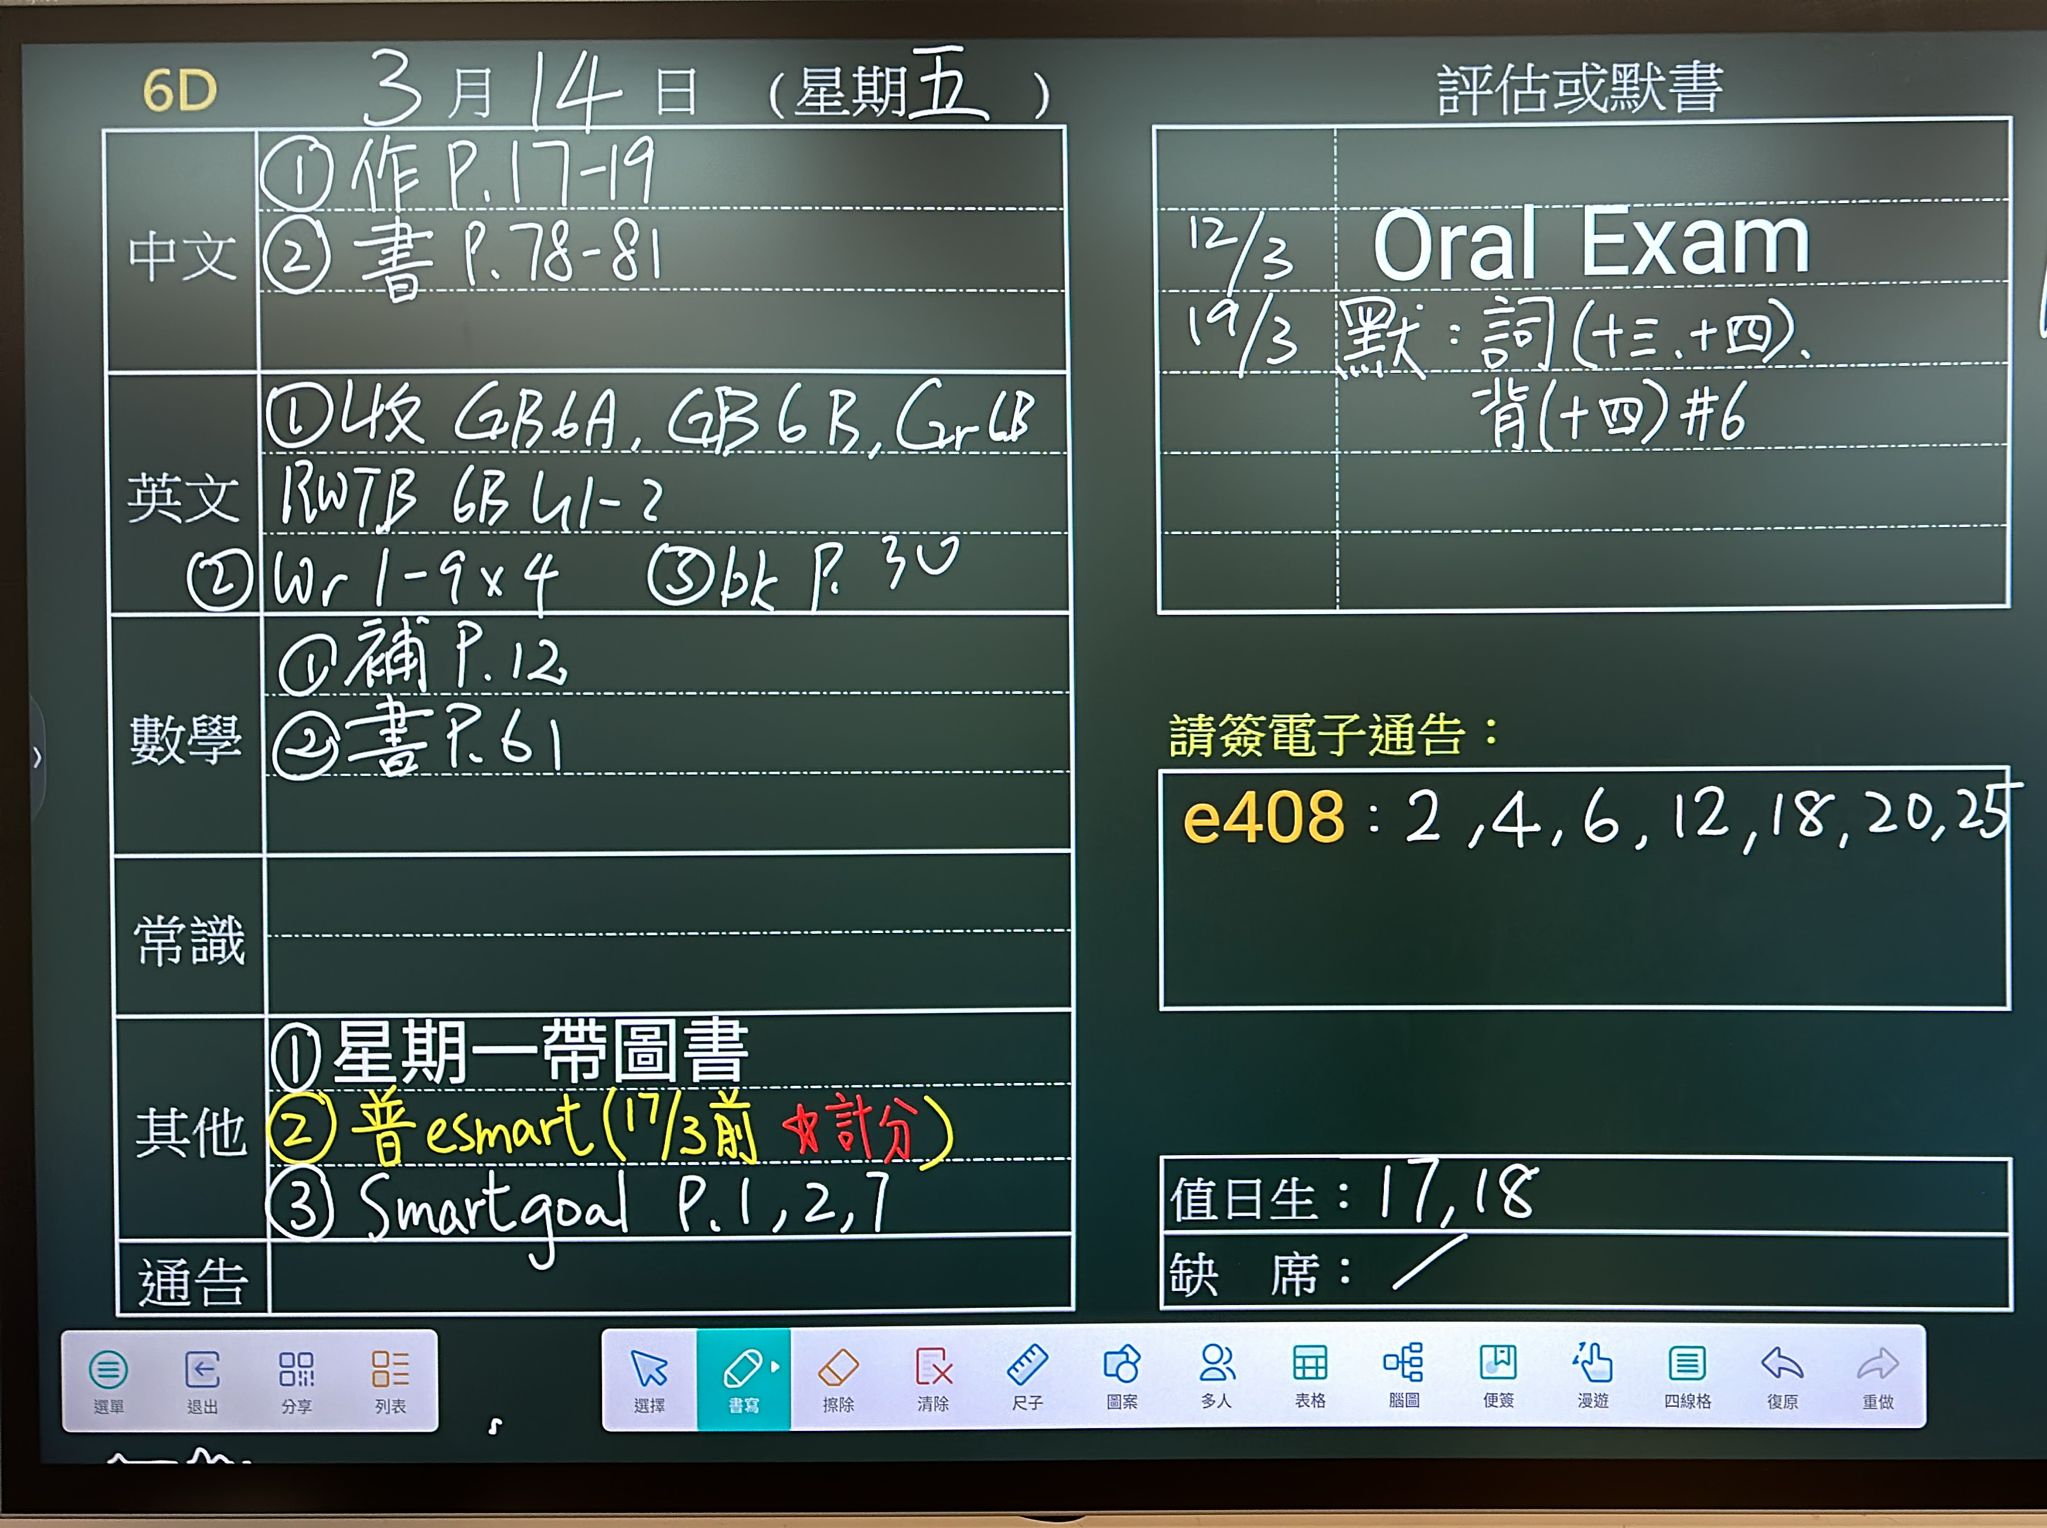 6D 3月14日（星期五）
中文
①作 P.17-19
②書 P.78-81
英文
①收 GB6A, GB6B, Gr6B
RWTB 6B U1-2
②Wr 1-9x4 ③bk P.30
數學
①補 P.12
②書 P.61
常識
其他
①星期一帶圖書
②普 esmart (17/3前 ☆計分)
③Smartgoal P.1,2,7
通告
評估或默書
12/3 Oral Exam
19/3 默：詞(十三、十四)、
背(十四)#6
請簽電子通告：
e408：2,4,6,12,18,20,25
值日生：17,18
缺 席：/
選單 退出 分享 列表
選擇 書寫 擦除 清除 尺子 圖案 多人 表格 腦圖 便簽 漫遊 四線格 復原 重做